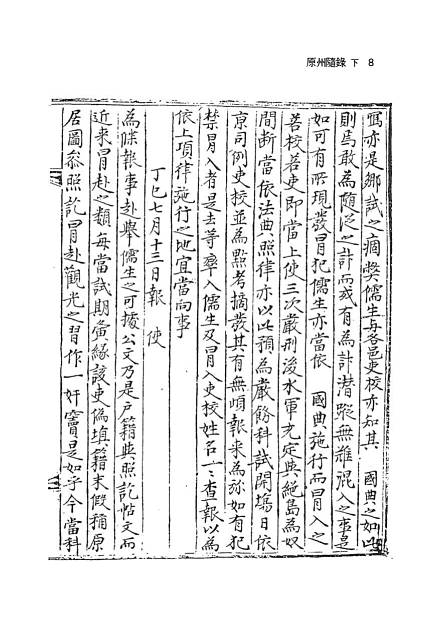 原州隨錄 下 8
寫亦是鄕試之痼獘儒生與各邑吏校亦知其 國典之如此
則焉敢爲隨泛之計而或有爲計潛蹤無難混入之事是
如可有所現發冒犯儒生亦當依 國典施行而冒入之
校若吏卽當上使三次嚴刑後水軍充定與絶島爲奴
間斷當依法典照律亦以此預爲嚴飭科試開塲日依
京司例吏校並爲點考摘發其有無頉報來爲旀如有犯
禁冒入者是去等率入儒生及冒入吏校姓名一一查報以爲
依上項律施行之地宜當向事
丁巳七月十三日報 使
爲牒報事赴擧儒生之可據公文乃是戶籍與照訖帖文而
近来冒赴之類每當試期夤緣該吏僞塡籍末假稱原
居圖參照訖冒赴觀光之習作一奸竇是如乎今當科